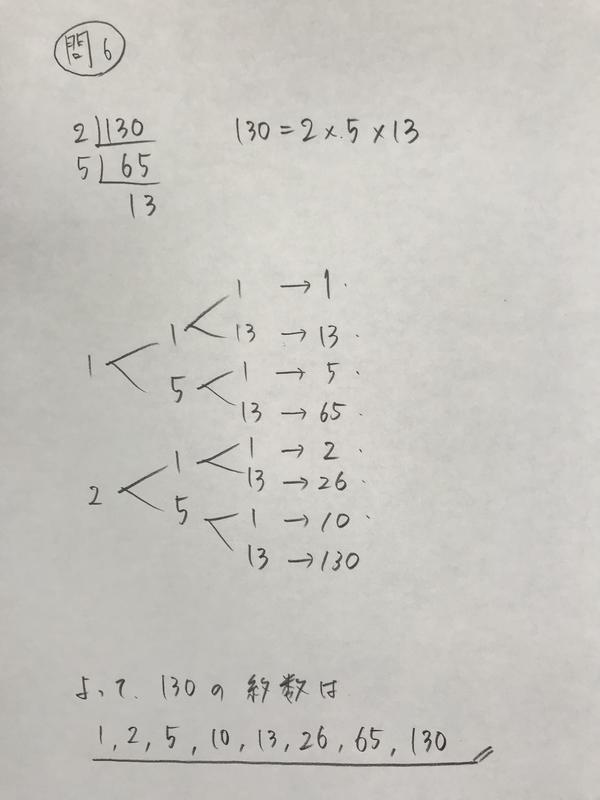 問6
2 130 130 = 2 × 5 × 13
5 65
13
1 → 1
1 13 → 13
1 1 → 5
5 13 → 65
1 1 → 2
13 → 26
2 5 1 → 10
13 → 130
よって、130の約数は
1, 2, 5, 10, 13, 26, 65, 130